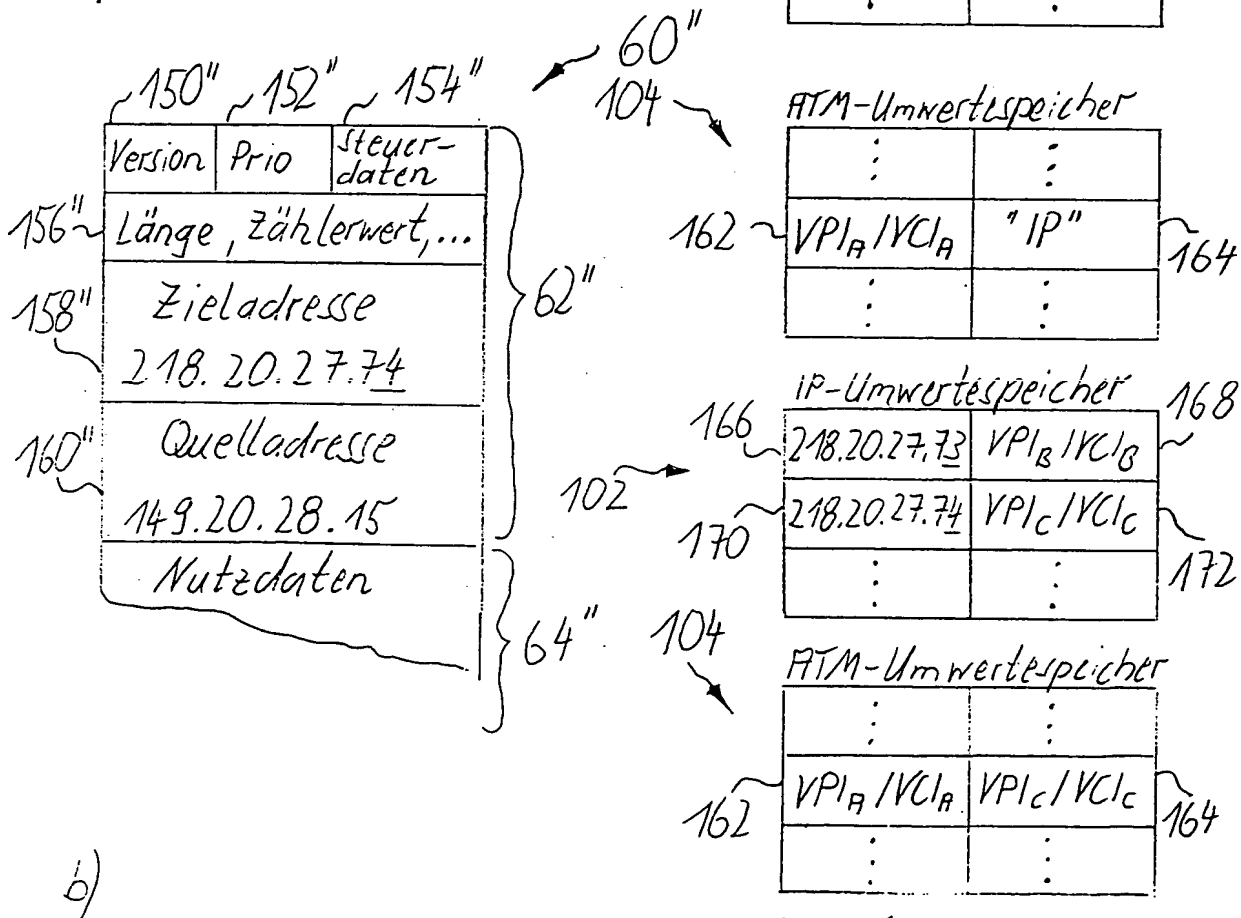 60"
150" 152" 154"
Version Prio Steuer-
daten
156" Länge, Zählerwert,...
62"
158" Zieladresse
218.20.27.74
160" Quelladresse
149.20.28.15
Nutzdaten
64"
104
ATM-Umwertespeicher
162 VPI_A/VCI_A "IP" 164
IP-Umwertespeicher
166 218.20.27.73 VPI_B/VCI_B 168
102
170 218.20.27.74 VPI_C/VCI_C 172
104
ATM-Umwertespeicher
162 VPI_A/VCI_A VPI_C/VCI_C 164
b)